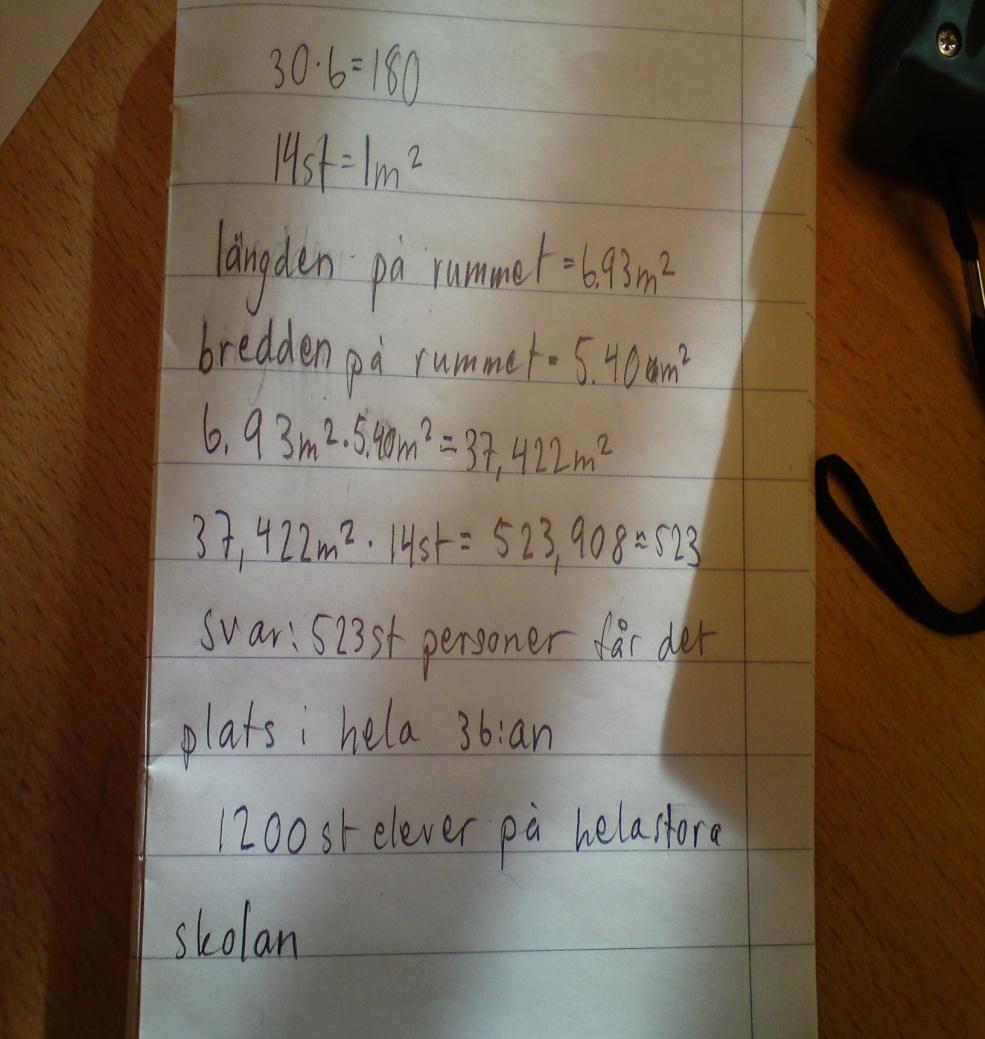 30·6=180
14st=1m²
längden på rummet=6.93m²
bredden på rummet=5.40m²
6.93m²·5.40m²=37,422m²
37,422m²·14st=523,908≈523
svar: 523st personer får det
plats i hela 36:an
1200st elever på hela stora
skolan